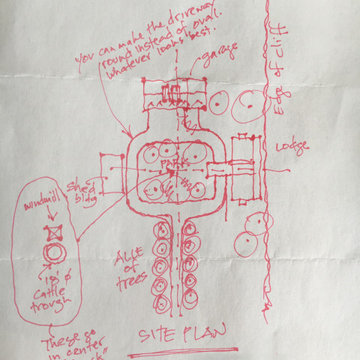 you can make the driveway
round instead of oval.
whatever looks best.
garage
Edge of Cliff
Lodge
PARK
Shed
bldg
windmill
10' ø
cattle
trough
These go
in center
Alle
of
trees
SITE PLAN